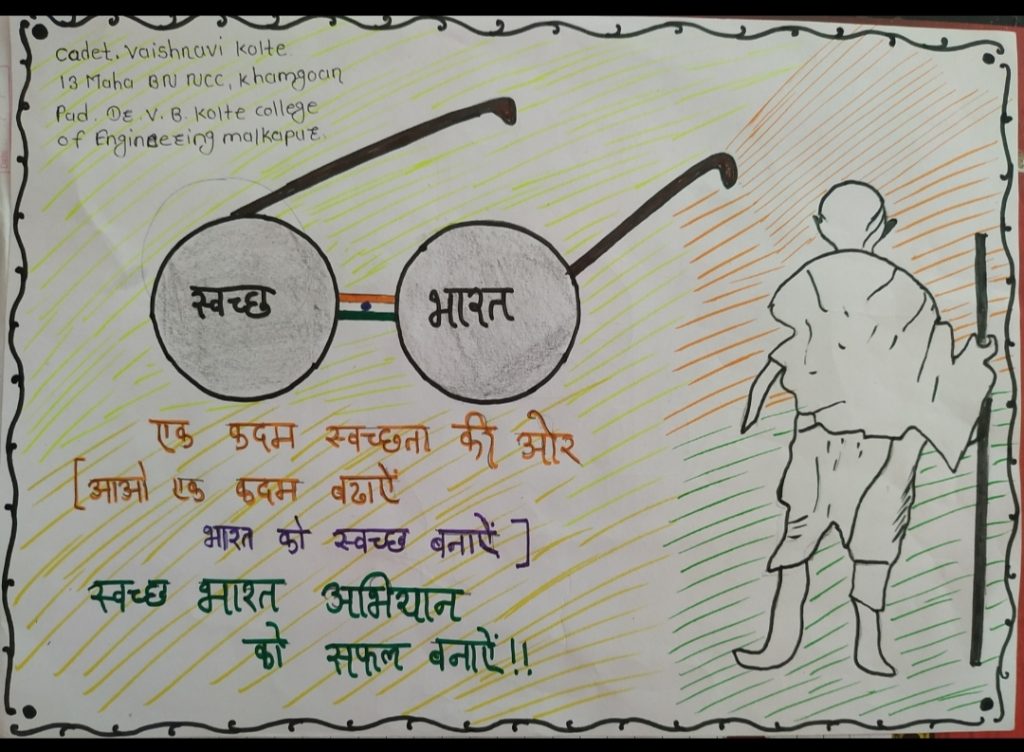 Cadet. Vaishnavi Kolte
13 Maha BN NCC, Khamgoan
Pad. Dr. V. B. Kolte college
of Engineering malkapur.
स्वच्छ
भारत
एक कदम स्वच्छता की ओर
[आओ एक कदम बढाऐं
भारत को स्वच्छ बनाऐं]
स्वच्छ भारत अभियान
को सफल बनाऐं!!